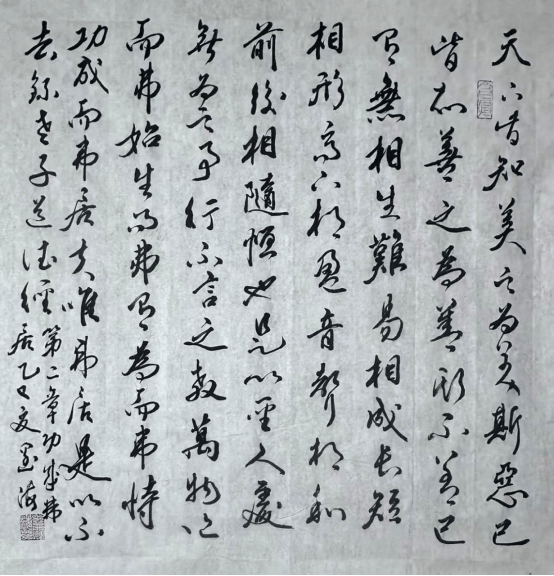 天下皆知美之为美斯惡已
皆知善之為善斯不善已
有無相生難易相成长短
相形高下相盈音聲相和
前後相隨恒也是以聖人處
無为之事行不言之教萬物作
而弗始生而弗有為而弗恃
功成而弗居夫唯弗居是以不
去錄老子道德經
第二章功成弗
居乙巳夏墨海